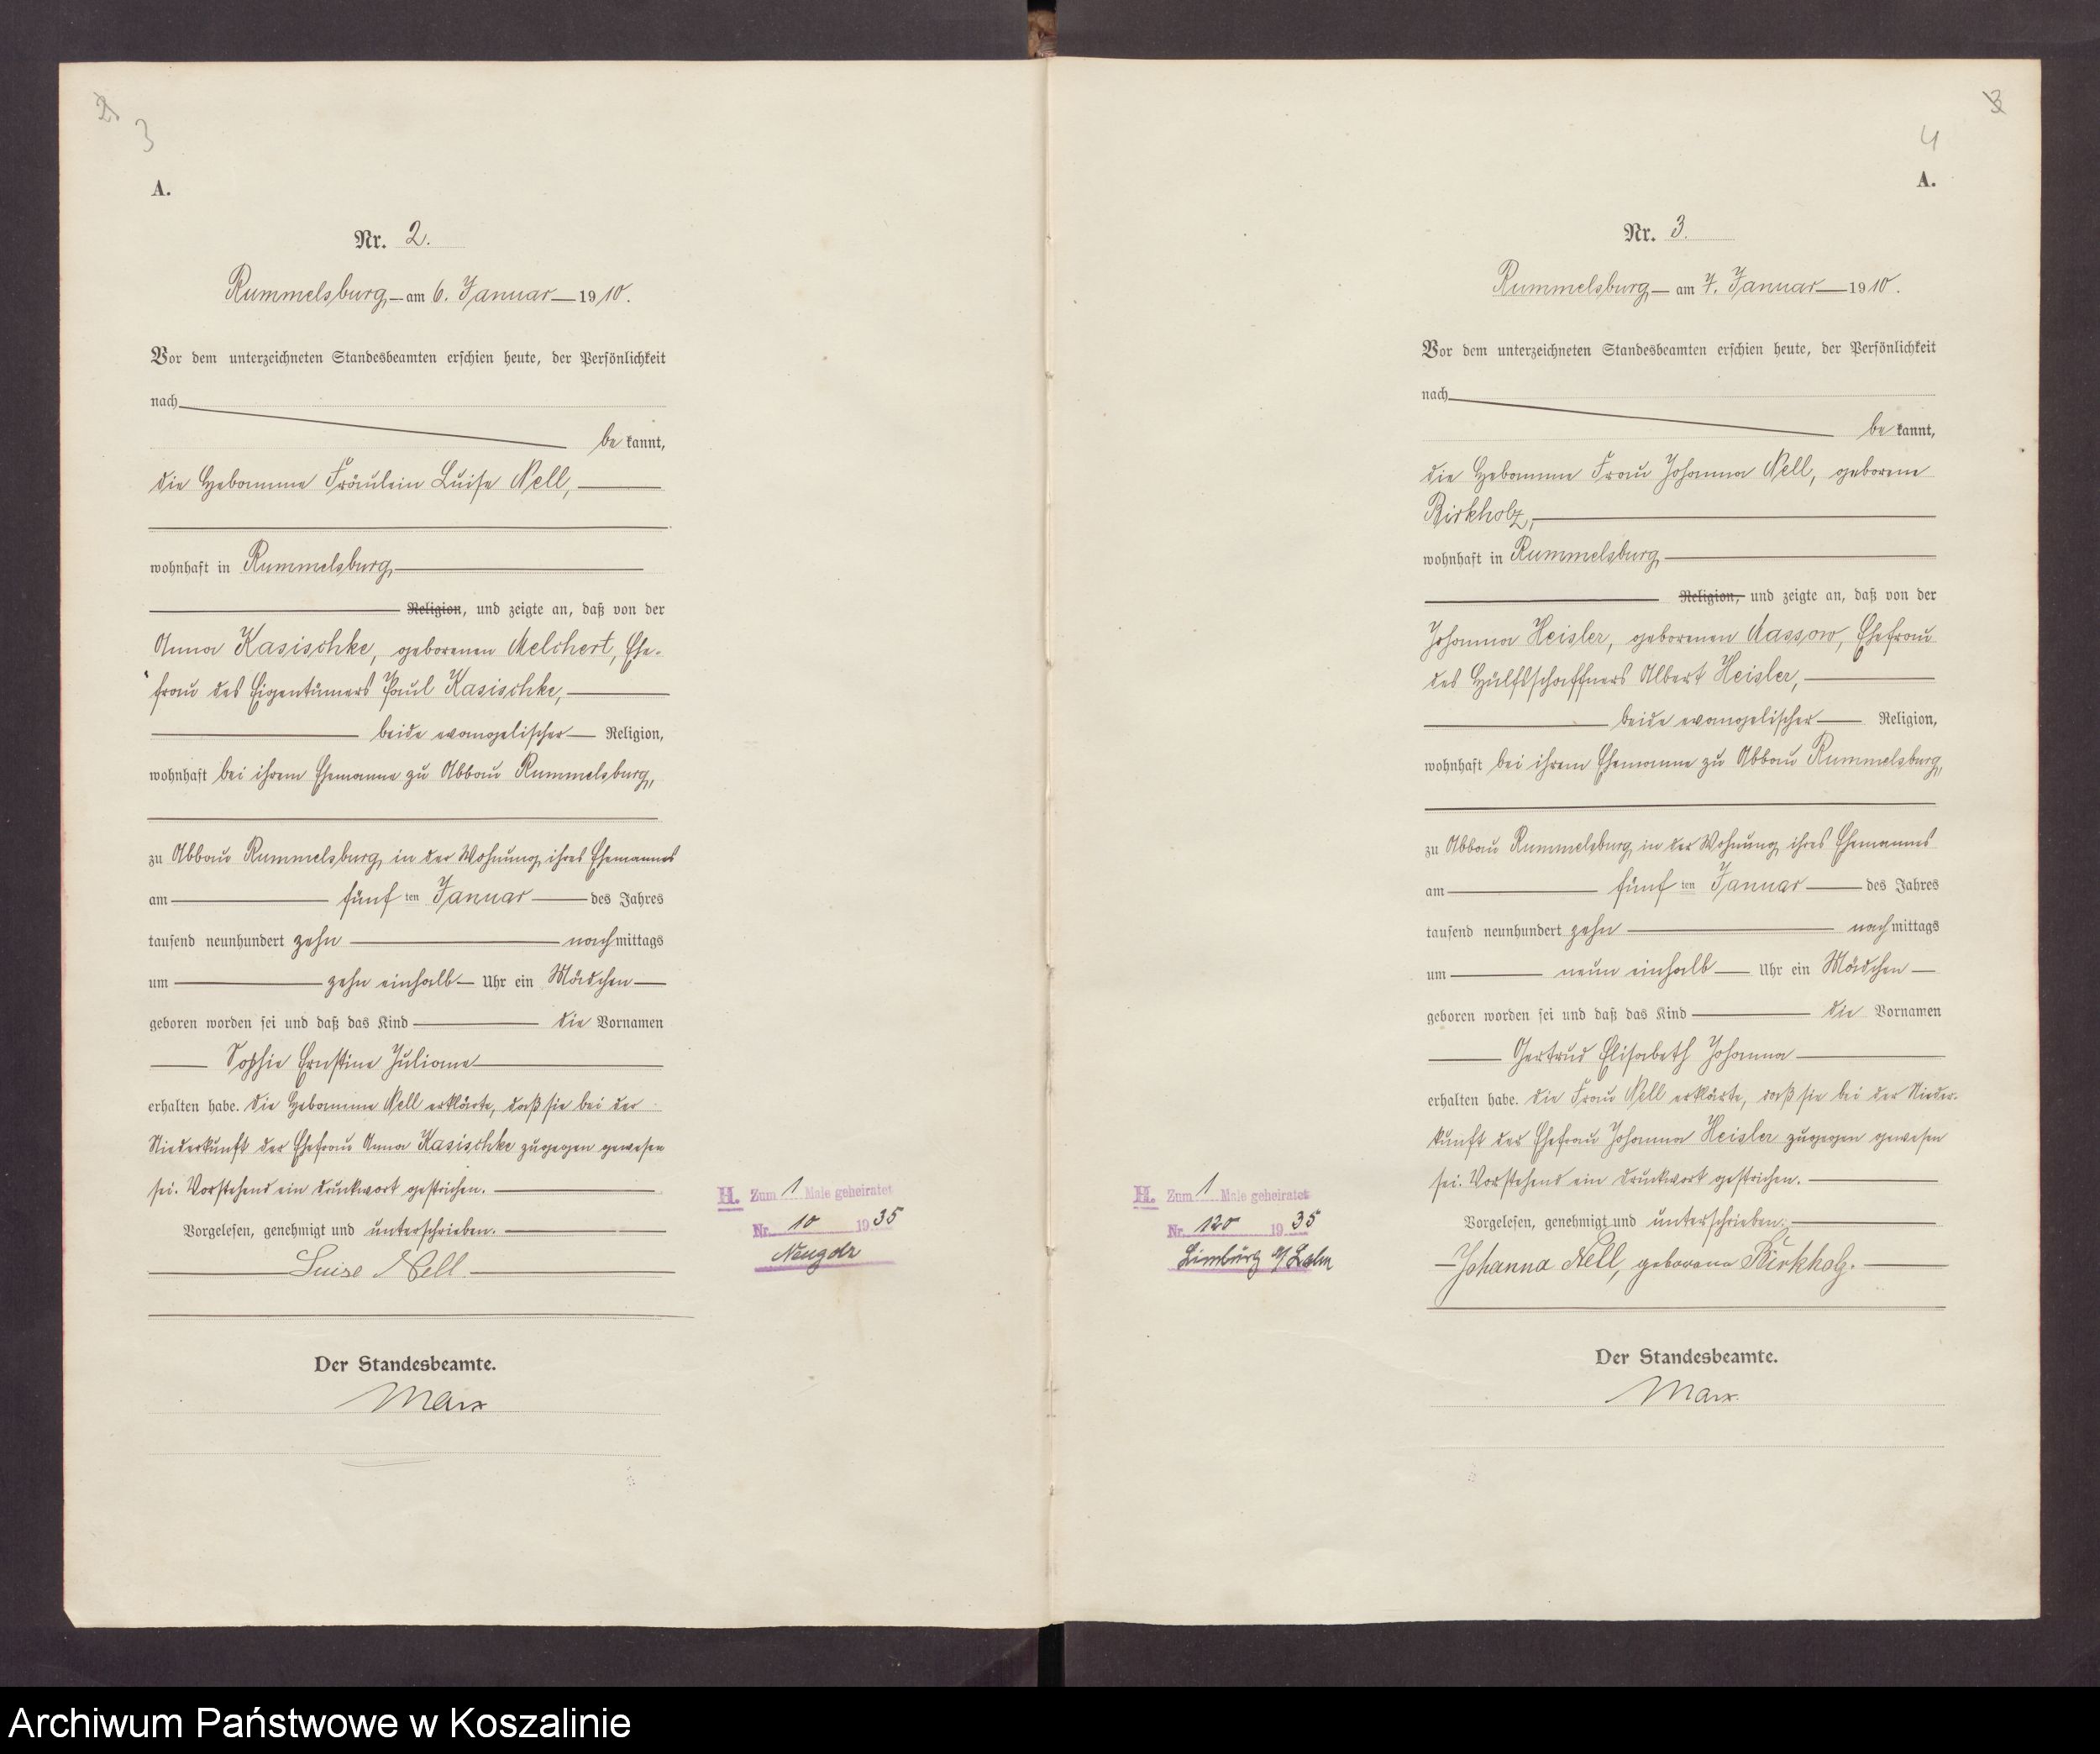 2
3
A.
Nr. 2.
Rummelsburg, am 6. Januar 1910.
Vor dem unterzeichneten Standesbeamten erschien heute, der Persönlichkeit
nach
be kannt,
die Hebamme Fräulein Luise Nell,
wohnhaft in Rummelsburg,
Religion, und zeigte an, daß von der
Anna Kasischke, geborenen Melchert, Ehe-
frau des Eigentümers Paul Kasischke,
beide evangelischer Religion,
wohnhaft bei ihrem Ehemanne zu Abbau Rummelsburg,
zu Abbau Rummelsburg, in der Wohnung ihres Ehemannes
am fünf ten Januar des Jahres
tausend neunhundert zehn nachmittags
um zehn einhalb Uhr ein Mädchen
geboren worden sei und daß das Kind die Vornamen
Sophie Ernstine Juliane
erhalten habe. Die Hebamme Nell erklärte, daß sie bei der
Niederkunft der Ehefrau Anna Kasischke zugegen gewesen
sei. Vorstehend ein Druckwort gestrichen.
Vorgelesen, genehmigt und unterschrieben.
Luise Nell
Der Standesbeamte.
Marx
H. Zum 1 Male geheiratet
Nr. 10 1935
3
4
A.
Nr. 3.
Rummelsburg, am 7. Januar 1910.
Vor dem unterzeichneten Standesbeamten erschien heute, der Persönlichkeit
nach
be kannt,
die Hebamme Frau Johanna Nell, geborene
Birkholz,
wohnhaft in Rummelsburg,
Religion, und zeigte an, daß von der
Johanna Heisler, geborenen Massow, Ehefrau
des Hülfsschaffners Albert Heisler,
beide evangelischer Religion,
wohnhaft bei ihrem Ehemanne zu Abbau Rummelsburg,
zu Abbau Rummelsburg, in der Wohnung ihres Ehemannes
am fünf ten Januar des Jahres
tausend neunhundert zehn nachmittags
um neun einhalb Uhr ein Mädchen
geboren worden sei und daß das Kind die Vornamen
Gertrud Elisabeth Johanna
erhalten habe. Die Frau Nell erklärte, daß sie bei der Nieder-
kunft der Ehefrau Johanna Heisler zugegen gewesen
sei. Vorstehend ein Druckwort gestrichen.
Vorgelesen, genehmigt und unterschrieben.
Johanna Nell, geborene Birkholz.
Der Standesbeamte.
Marx.
H. Zum 1 Male geheiratet
Nr. 120 1935
Limburg a/Lahn
Archiwum Państwowe w Koszalinie